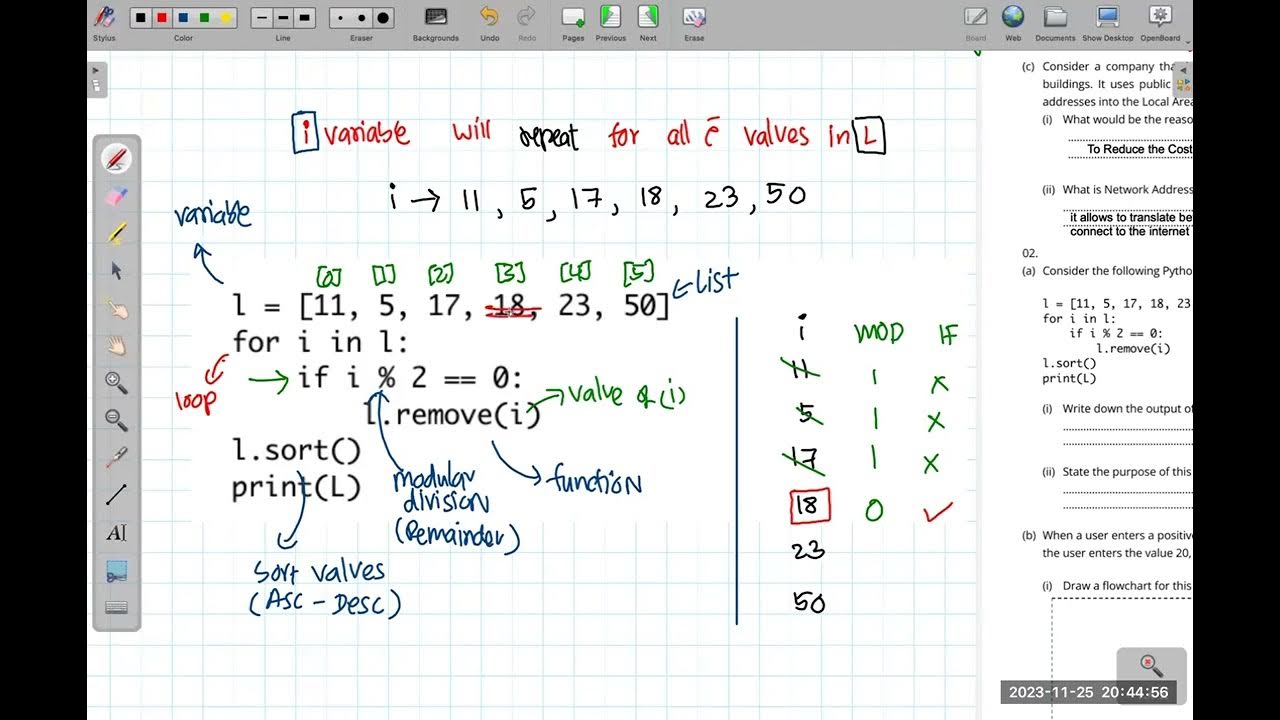 Stylus
Color
Line
Eraser
Backgrounds
Undo
Redo
Pages
Previous
Next
Erase
Board
Web
Documents
Show Desktop
OpenBoard
i variable will repeat for all c̄ values in L
i → 11, 5, 17, 18, 23, 50
variable
[0] [1] [2] [3] [4] [5]
List
l = [11, 5, 17, 18, 23, 50]
for i in l:
if i % 2 == 0:
l.remove(i)
l.sort()
print(L)
loop
value of (i)
function
modular
division
(Remainder)
Sort values
(Asc - Desc)
i MOD IF
11 1 x
5 1 x
17 1 x
18 0 ✓
23
50
(c) Consider a company tha
buildings. It uses public
addresses into the Local Area
(i) What would be the reaso
To Reduce the Cost
(ii) What is Network Address
it allows to translate be
connect to the internet
02.
(a) Consider the following Pytho
l = [11, 5, 17, 18, 23
for i in l:
if i % 2 == 0:
l.remove(i)
l.sort()
print(L)
(i) Write down the output of
(ii) State the purpose of this
(b) When a user enters a positive
the user enters the value 20,
(i) Draw a flowchart for this
2023-11-25 20:44:56